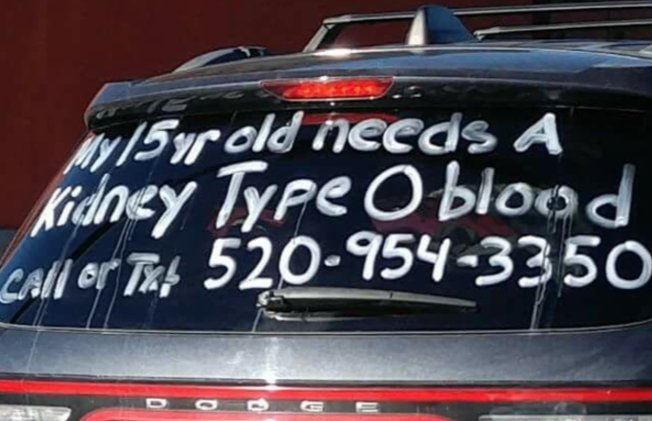 My 15 yr old needs A
Kidney Type O blood
call or Txt 520-954-3350
DODGE